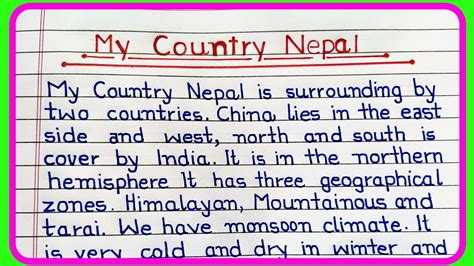 My Country Nepal
My Country Nepal is surrounding by
two countries. China lies in the east
side and west, north and south is
cover by India. It is in the northern
hemisphere It has three geographical
zones. Himalayan, Mountainous and
tarai. We have monsoon climate. It
is very cold and dry in winter and